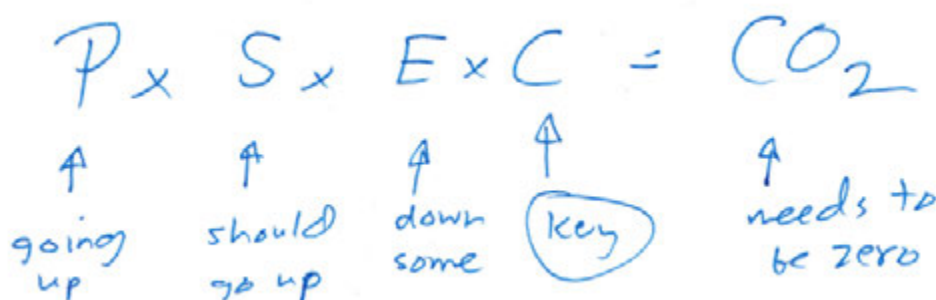 P x S x E x C = CO₂
going up
should go up
down some
key
needs to be zero